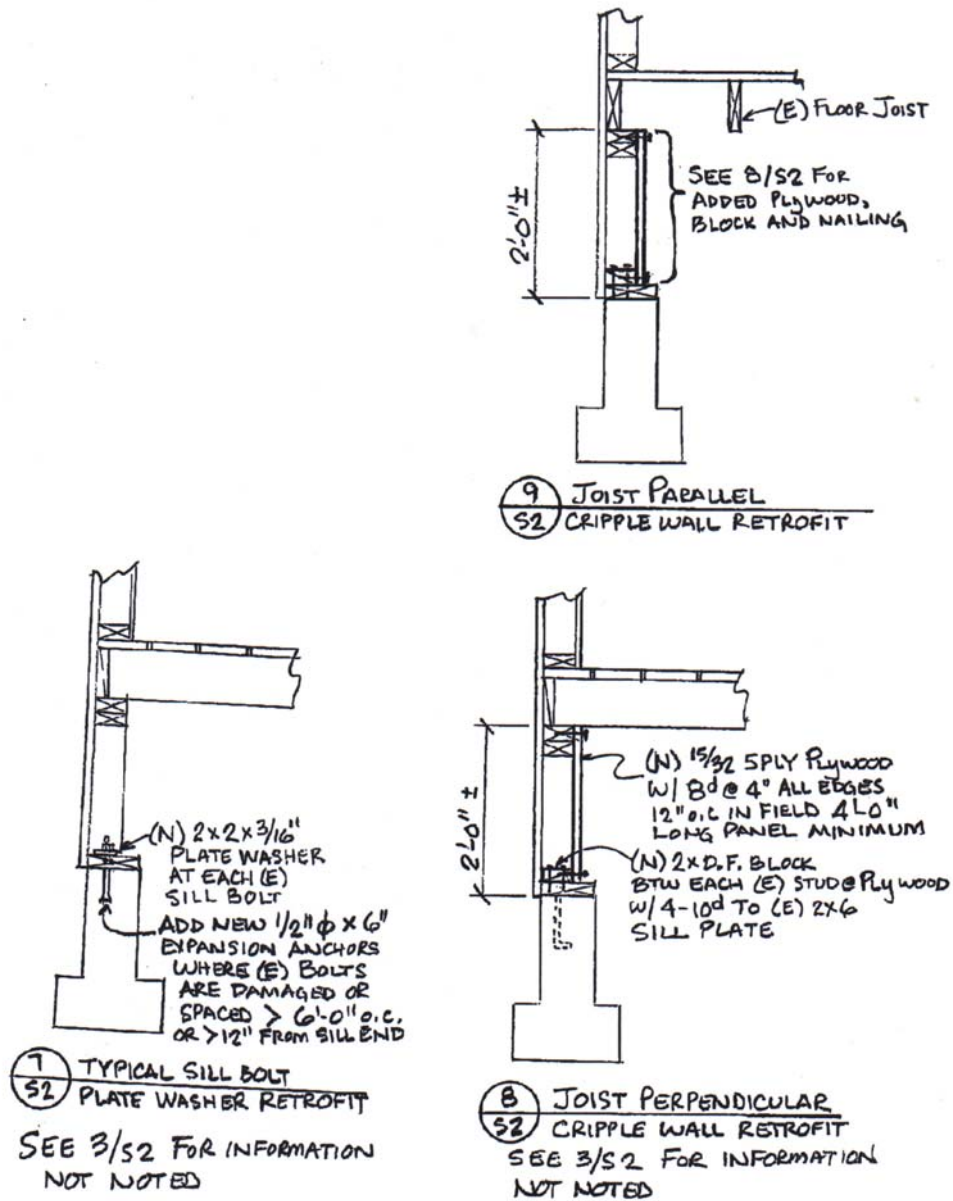 (E) FLOOR JOIST
2'-0" ±
SEE 8/S2 FOR
ADDED PLYWOOD,
BLOCK AND NAILING
9
S2
JOIST PARALLEL
CRIPPLE WALL RETROFIT
(N) 2x2x3/16"
PLATE WASHER
AT EACH (E)
SILL BOLT
ADD NEW 1/2" ϕ x 6"
EXPANSION ANCHORS
WHERE (E) BOLTS
ARE DAMAGED OR
SPACED > 6'-0" o.c.
OR >12" FROM SILL END
7
S2
TYPICAL SILL BOLT
PLATE WASHER RETROFIT
SEE 3/S2 FOR INFORMATION
NOT NOTED
2'-0" ±
(N) 15/32 5PLY PLYWOOD
W/ 8d @ 4" ALL EDGES
12" o.c IN FIELD 4'-0"
LONG PANEL MINIMUM
(N) 2x D.F. BLOCK
BTW EACH (E) STUD @ PLYWOOD
W/ 4-10d TO (E) 2x6
SILL PLATE
8
S2
JOIST PERPENDICULAR
CRIPPLE WALL RETROFIT
SEE 3/S2 FOR INFORMATION
NOT NOTED